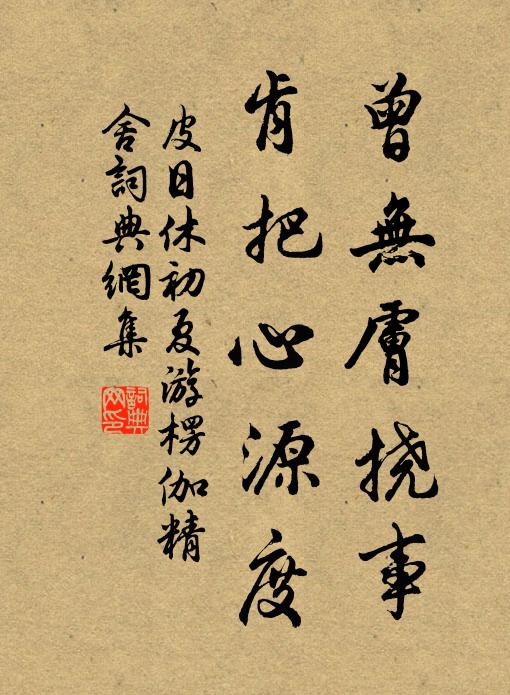 曾無膚撓事
肯把心源度
皮日休初夏游楞伽精
舍詞典網集
詞典
網印